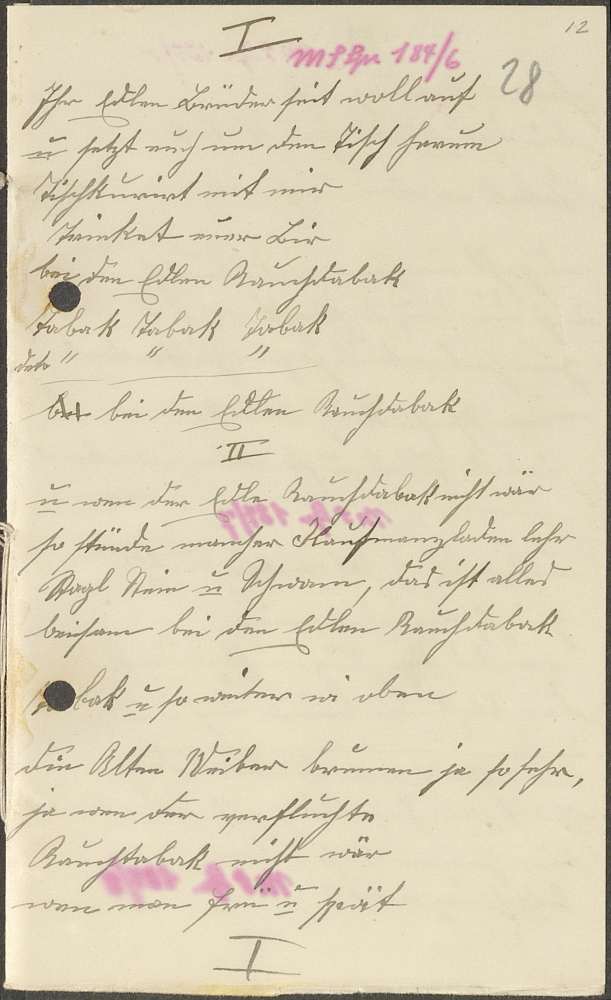 12
I
28
Ihr Edlen Brüder seit wollauf
u setzt euch um den Tisch herum
Tischkurirt mit mir
Trinket euer Bir
bei den Edlen Rauchdabak
Tabak Tabak Tabak
deto " " "
bei den Edlen Rauchdabak
II
u wen der Edle Rauchdabak nicht wär
so stünde mancher Kaufmanzladen lehr
Stein u Schwam, das ist alles
beisam bei den Edlen Rauchdabak
bak u so weiter wi oben
die Alten Weiber brumen ja so sehr,
ja wen der verfluchte
Rauchtabak nicht wär
wen man Frü u spät
I